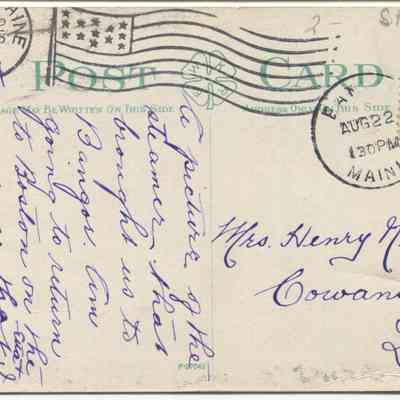 AINE
2-
POST CARD
AGE MAY BE WRITTEN ON THIS SIDE
ADDRESS ON THIS SIDE
BAN
AUG 22
1 30 PM
MAINE
A picture of the
steamer that
brought us to
Bangor. Am
going to return
to Boston on the
Mrs. Henry
Cowan